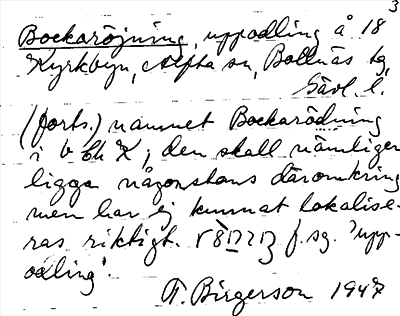 3
Bockaröjning, uppodling å 18
Kyrkbyn, Alfta sn, Bollnäs tg,
Gävl. l.
(forts.) namnet Bockarödning
i b Ch K; den skall nämligen
ligga någonstans däromkring
men har ej kunnat lokalise-
ras riktigt. f. sg. 'upp-
odling'.
T. Birgerson 1947